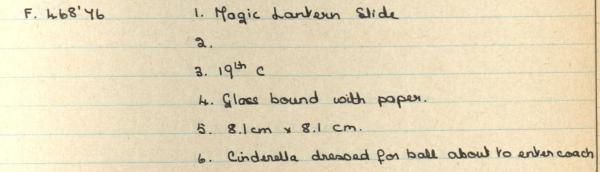 F. 468'76 1. Magic Lantern Slide
2.
3. 19th C
4. Glass bound with paper.
5. 8.1cm x 8.1 cm.
6. Cinderella dressed for ball about to enter coach